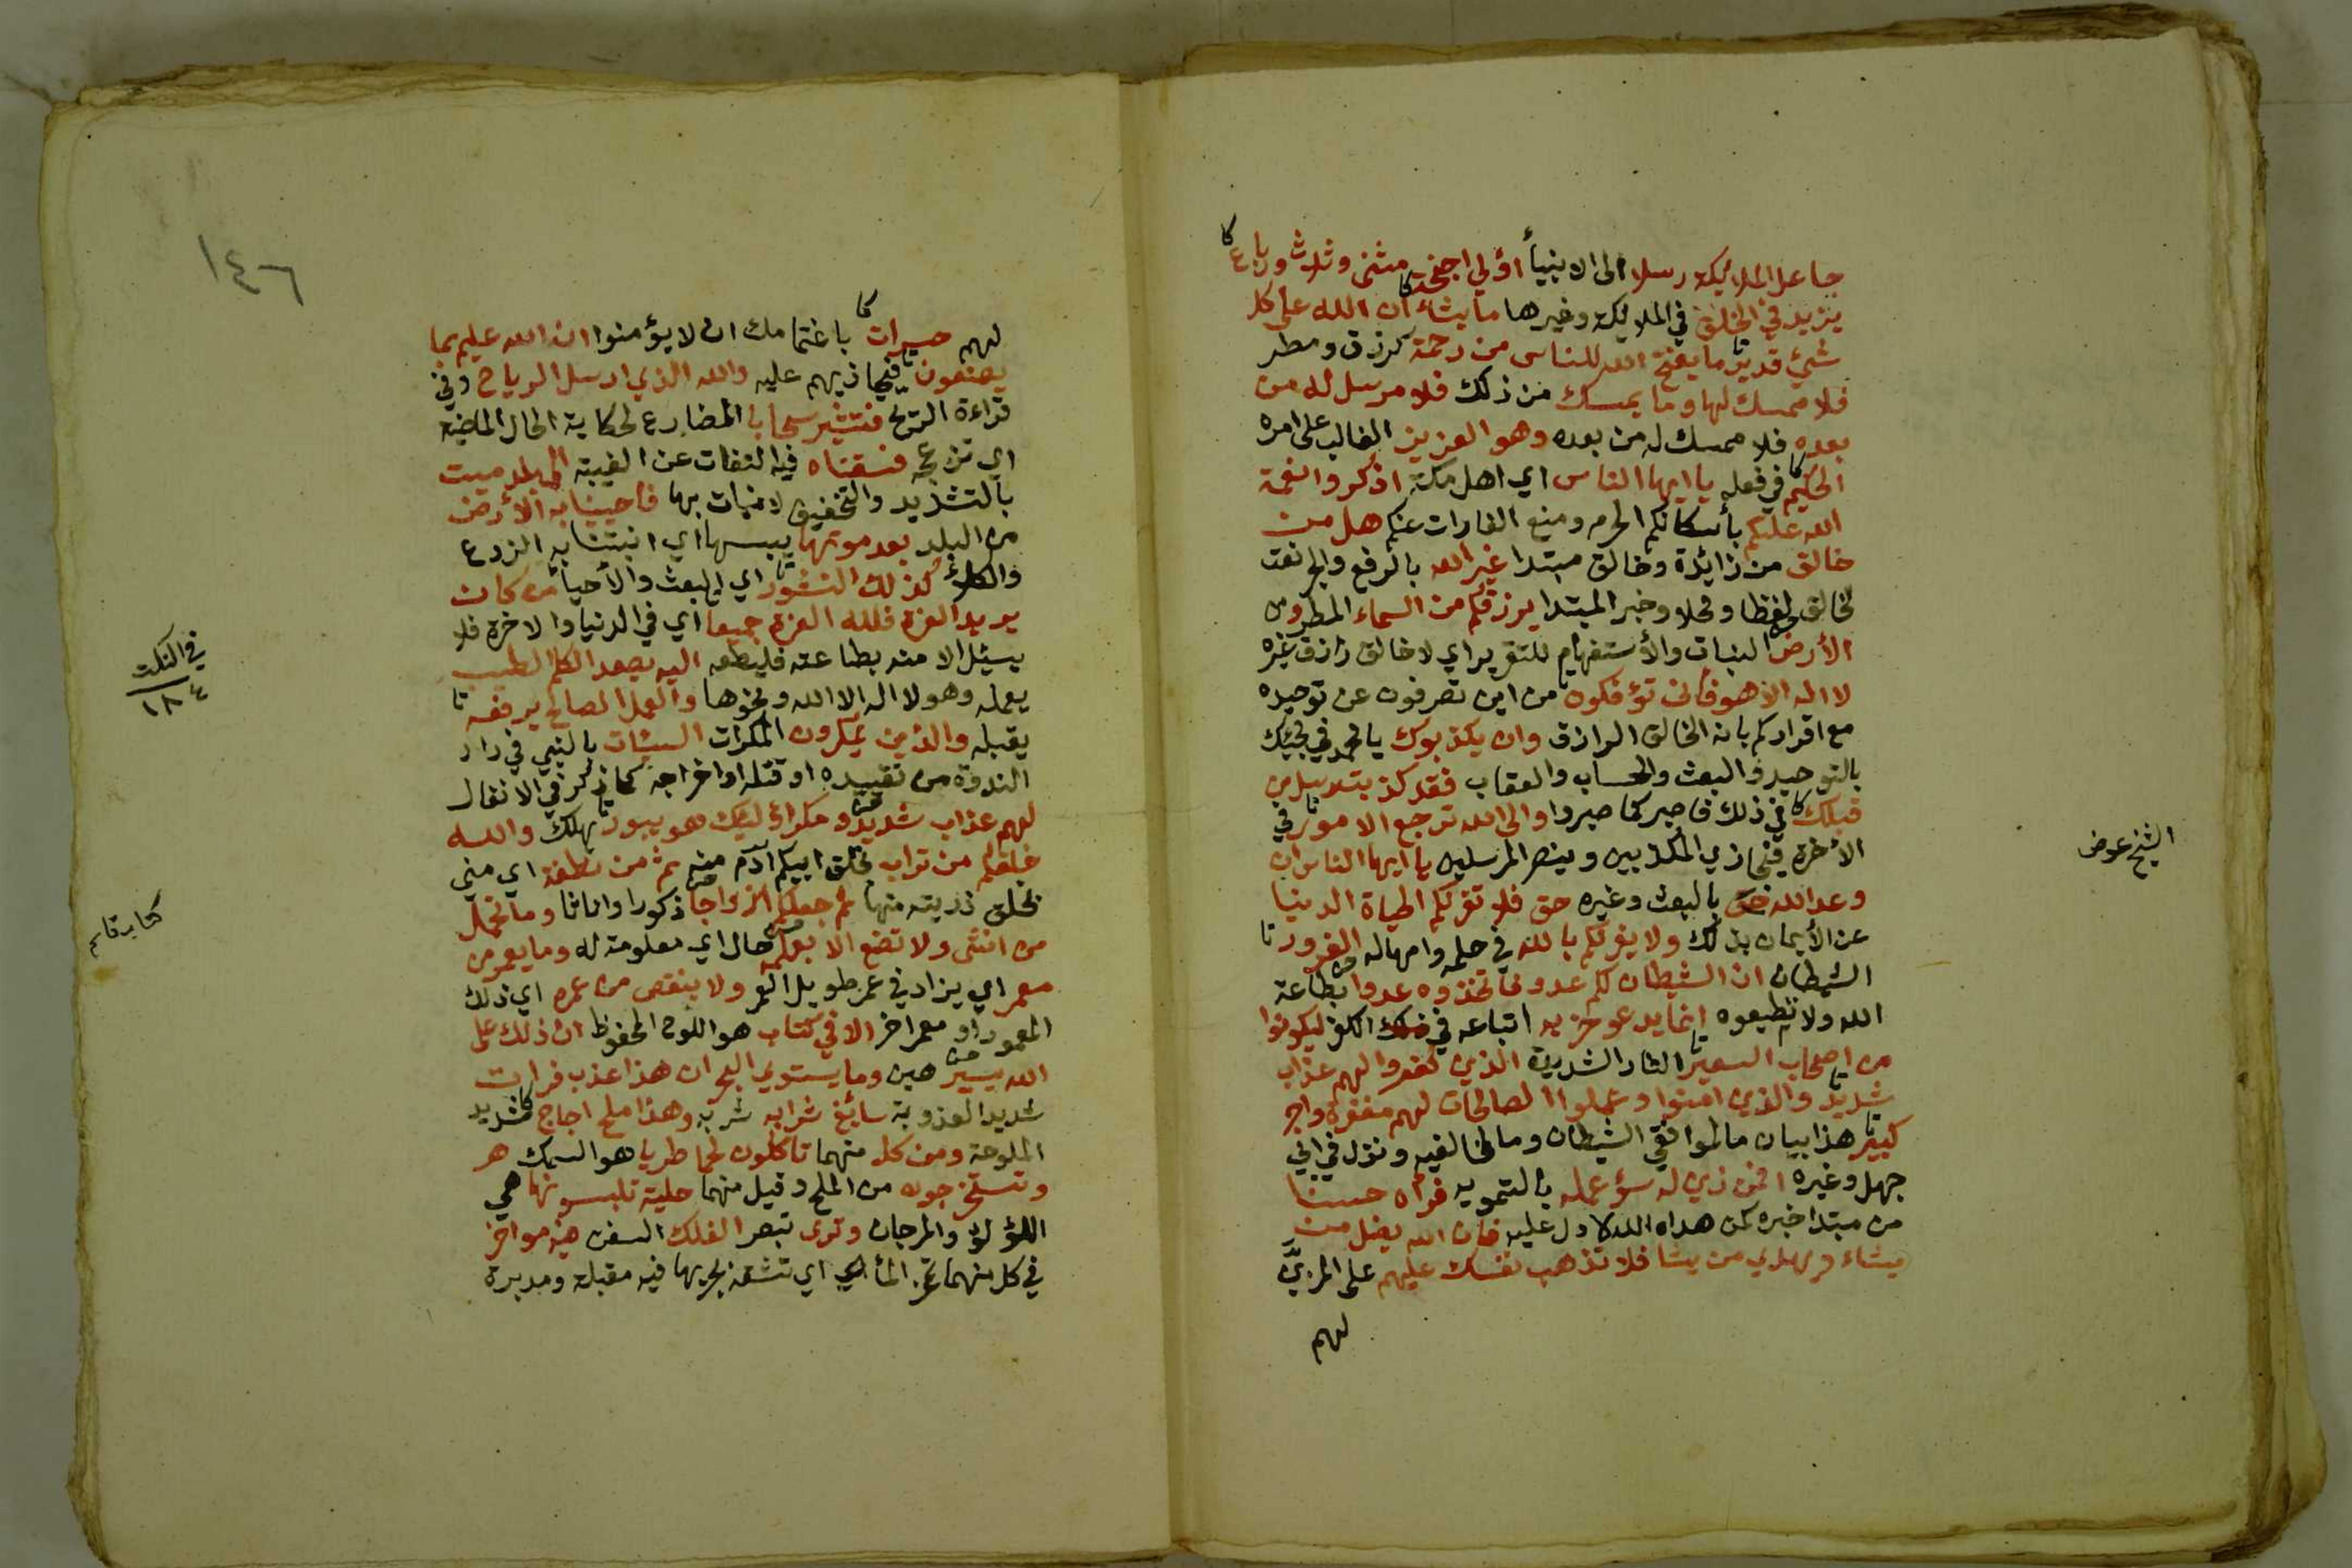 جاعل الملائيكة رسلا الى الانبيأ اولي اجنحة مثنى وثلاث ورباع
يزيد في الخلق في الملائيكة وغيرها ما يشاء ان الله على كل
شيئ قدير ما يفتح الله للناس من رحمة كرزق ومطر
فلا ممسك لها وما يمسك من ذلك فلا مرسل له من
بعده فلا ممسك له من بعده وهو العزيز الغالب على امره
الحكيم في فعله يا ايها الناس اي اهل مكة اذكروا نعمة
الله عليكم بأسكانكم الحرم ومنع الغارات عنكم هل من
خالق من زائدة وخالق مبتدا غير الله بالرفع والجر نعت
لخالق لفظا ومحلا وخبر المبتدا يرزقكم من السماء المطر ومن
الأرض النبات والأستفهام للتقرير اي لا خالق رازق غيره
لا اله الا هو فأنى تؤفكون من اين تصرفون عن توحيده
مع اقراركم بانه الخالق الرازق وان يكذبوك يا محمد في مجيئك
بالتوحيد والبعث والحساب والعقاب فقد كذبت رسل من
قبلك في ذلك فاصبر كما صبروا والى الله ترجع الامور في
الأخرة فيجازي المكذبين وينصر المرسلين يا ايها الناس ان
وعد الله حق بالبعث وغيره حق فلا تغرنكم الحياة الدنيا
عن الأيمان بذلك ولا يغرنكم بالله في حلمه وامهاله الغرور
الشيطان ان الشيطان لكم عدو فاتخذوه عدوا بطاعة
الله ولا تطيعوه انما يدعو حزبه اتباعه في الكفر ليكونوا
من اصحاب السعير النار الشديدة الذين كفروا لهم عذاب
شديد والذين امنوا وعملوا الصالحات لهم مغفرة واجر
كبير هذا بيان ما لموافقي الشيطان وما لمخالفيه ونزل في ابي
جهل وغيره افمن زين له سؤ عمله بالتمويه فرأه حسنا
من مبتدا خبره كمن هداه الله لا دل عليه فان الله يضل من
يشاء ويهدي من يشا فلا تذهب نفسك عليهم على المزين
لهم
الشيخ عوض
١٤٦
لهم حسرات باغتمامك ان لا يؤمنوا ان الله عليم بما
يصنعون فيجازيهم عليه والله الذي ارسل الرياح وفي
قراءة الريح فتثير سحابا المضارع لحكاية الحال الماضية
اي تزعجه فسقناه فيه التفات عن الغيبة الى بلد ميت
بالتشديد والتخفيف لا نبات بها فاحيينا به الأرض
من البلد بعد موتها يبسها اي انبتنا به الزرع
والكلأ كذلك النشور اي البعث والأحيأ من كان
يريد العزة فلله العزة جميعا اي في الدنيا والاخرة فلا
ينال الا منه بطاعته فليطعه اليه يصعد الكلم الطيب
يعمله وهو لا اله الا الله ونحوها والعمل الصالح يرفعه
يقبله والذين يمكرون المكرات السيئات بالنبي في دار
الندوة من تقييده او قتله او اخراجه كما ذكر في الانفال
لهم عذاب شديد ومكر اوليك هو يبور يهلك والله
خلقكم من تراب بخلق ابيكم آدم منه ثم من نطفة اي مني
بخلق ذريته منها ثم جعلكم ازواجا ذكورا واناثا وما تحمل
من انثى ولا تضع الا بعلمه حال اي معلومة له وما يعمر من
معمر اي يزاد في عمر طويل العمر ولا ينقص من عمره اي ذلك
المعمر او معمر اخر الا في كتاب هو اللوح المحفوظ ان ذلك على
الله يسير هين وما يستوي البحران هذا عذب فرات
شديد العذوبة سائغ شرابه شربه وهذا ملح اجاج شديد
الملوحة ومن كل منهما تاكلون لحما طريا هو السمك
وتستخرجون من الملح وقيل منهما حلية تلبسونها هي
اللؤلؤ والمرجان وترى تبصر الفلك السفن فيه مواخر
في كل منهما تمخر المأ اي تشقه بجريها فيه مقبلة ومدبرة
في النكت
١٨٤